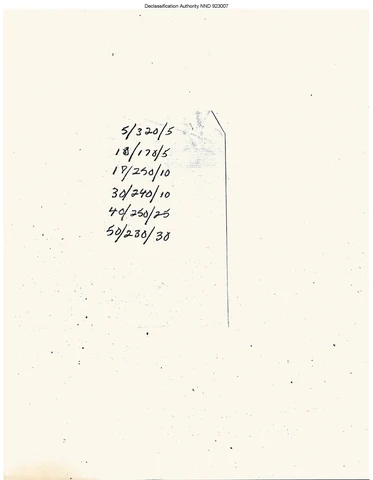 Declassification Authority NND 923007
5/320/5
18/170/5
17/250/10
30/240/10
40/250/25
50/230/30